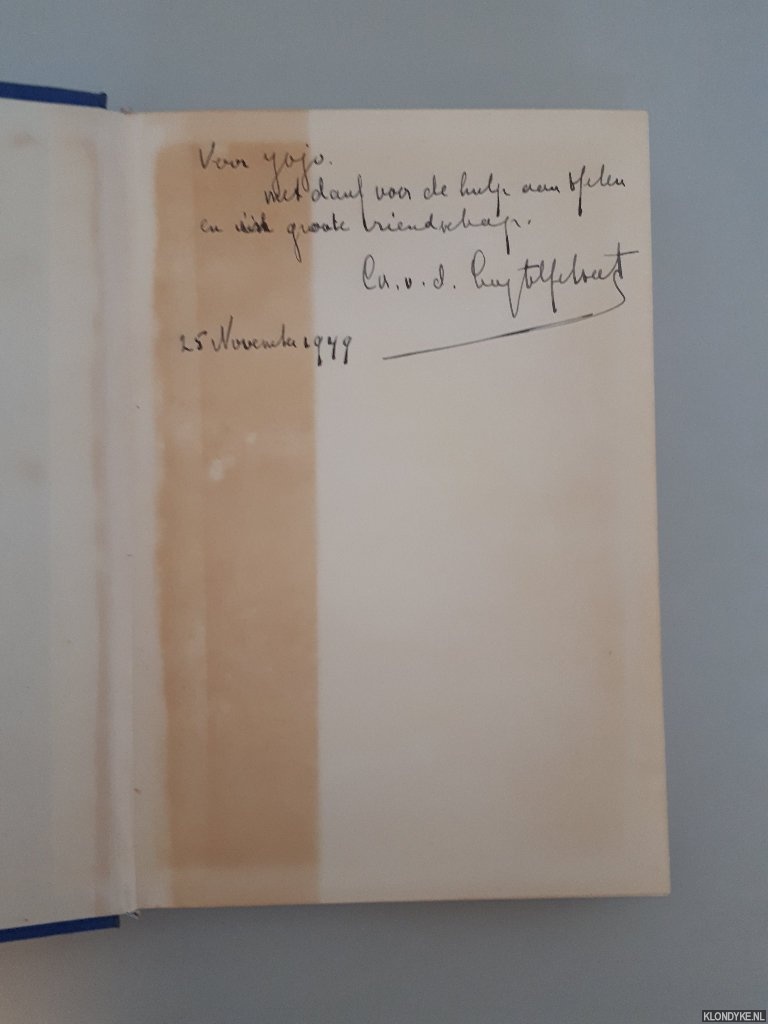 Voor Yojo.
met dank voor de hulp aan
en groote vriendschap.
C. v. d.
25 November 1949
KLONDYKE.NL